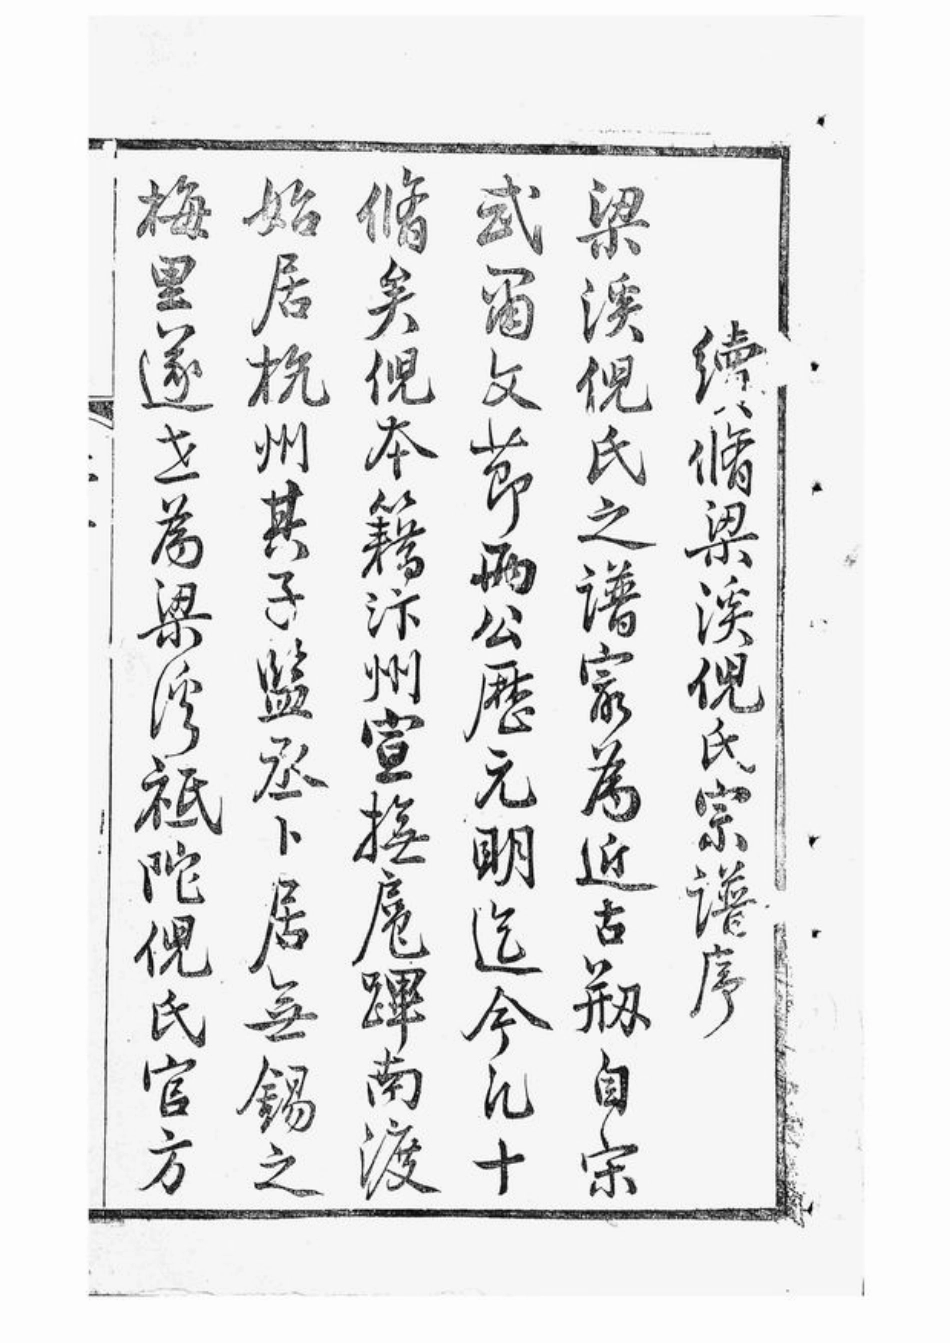 續脩梁溪倪氏宗譜序
梁溪倪氏之譜寂為近古剏自宋
式甯文節兩公歷元明迄今凡十
脩矣倪本籍汴州宣撫扈蹕南渡
始居杭州其子監丞卜居無錫之
梅里遂世為梁溪祗陀倪氏官方